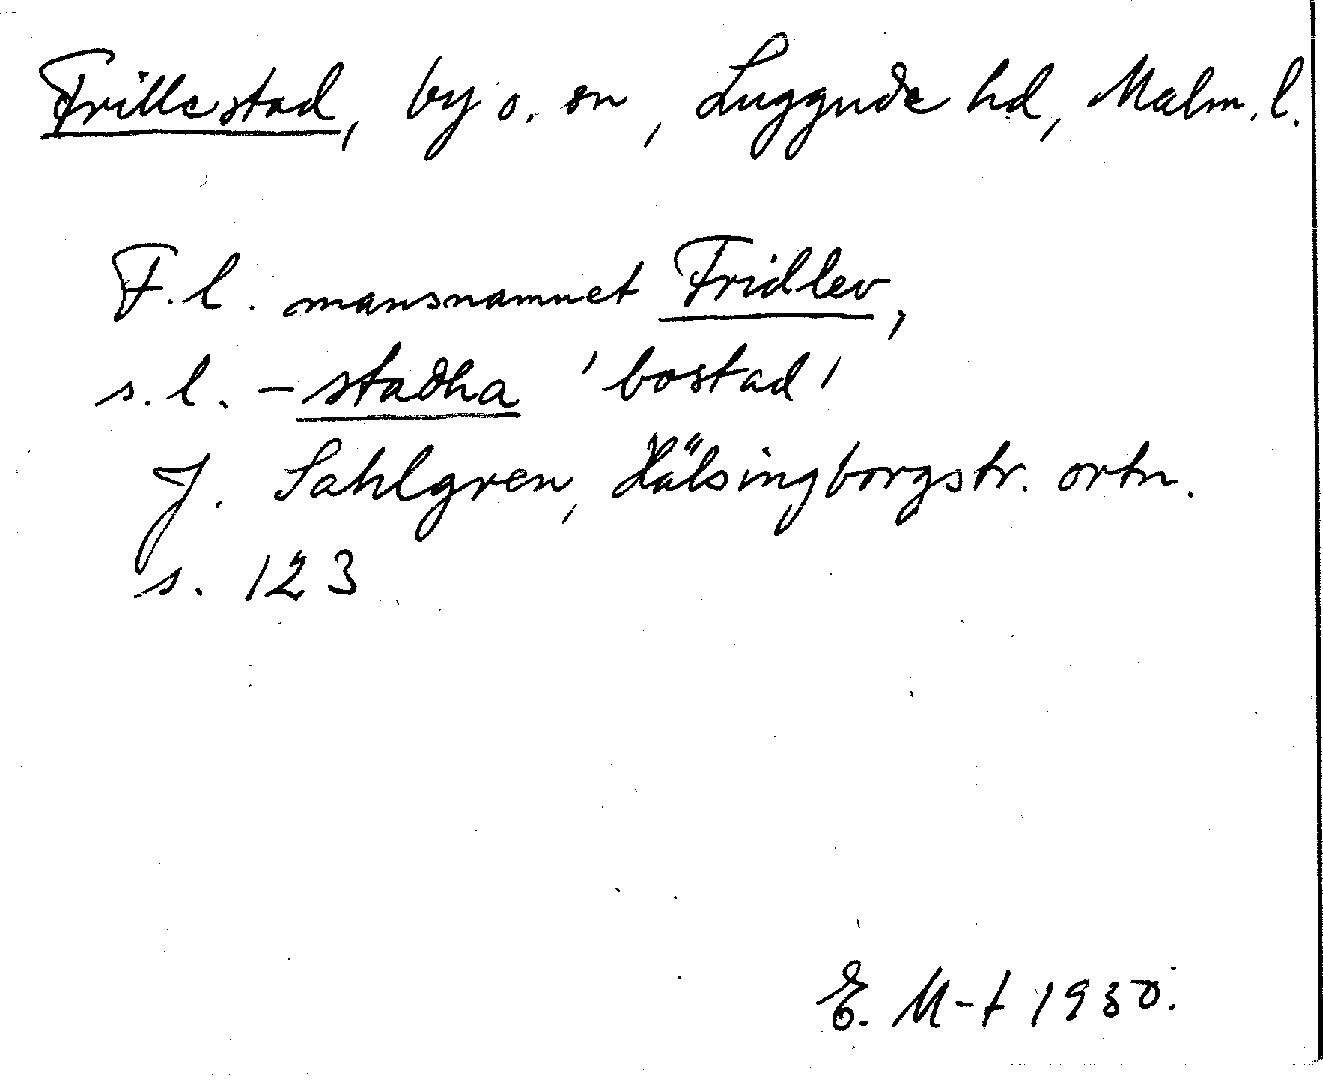 Frillestad, by o. sn, Luggude hd, Malm. l.
F. l. mansnamnet Fridlev,
s. l. -stadha 'bostad'
J. Sahlgren, Hälsingborgstr. ortn.
s. 123
E. M-t 1930.